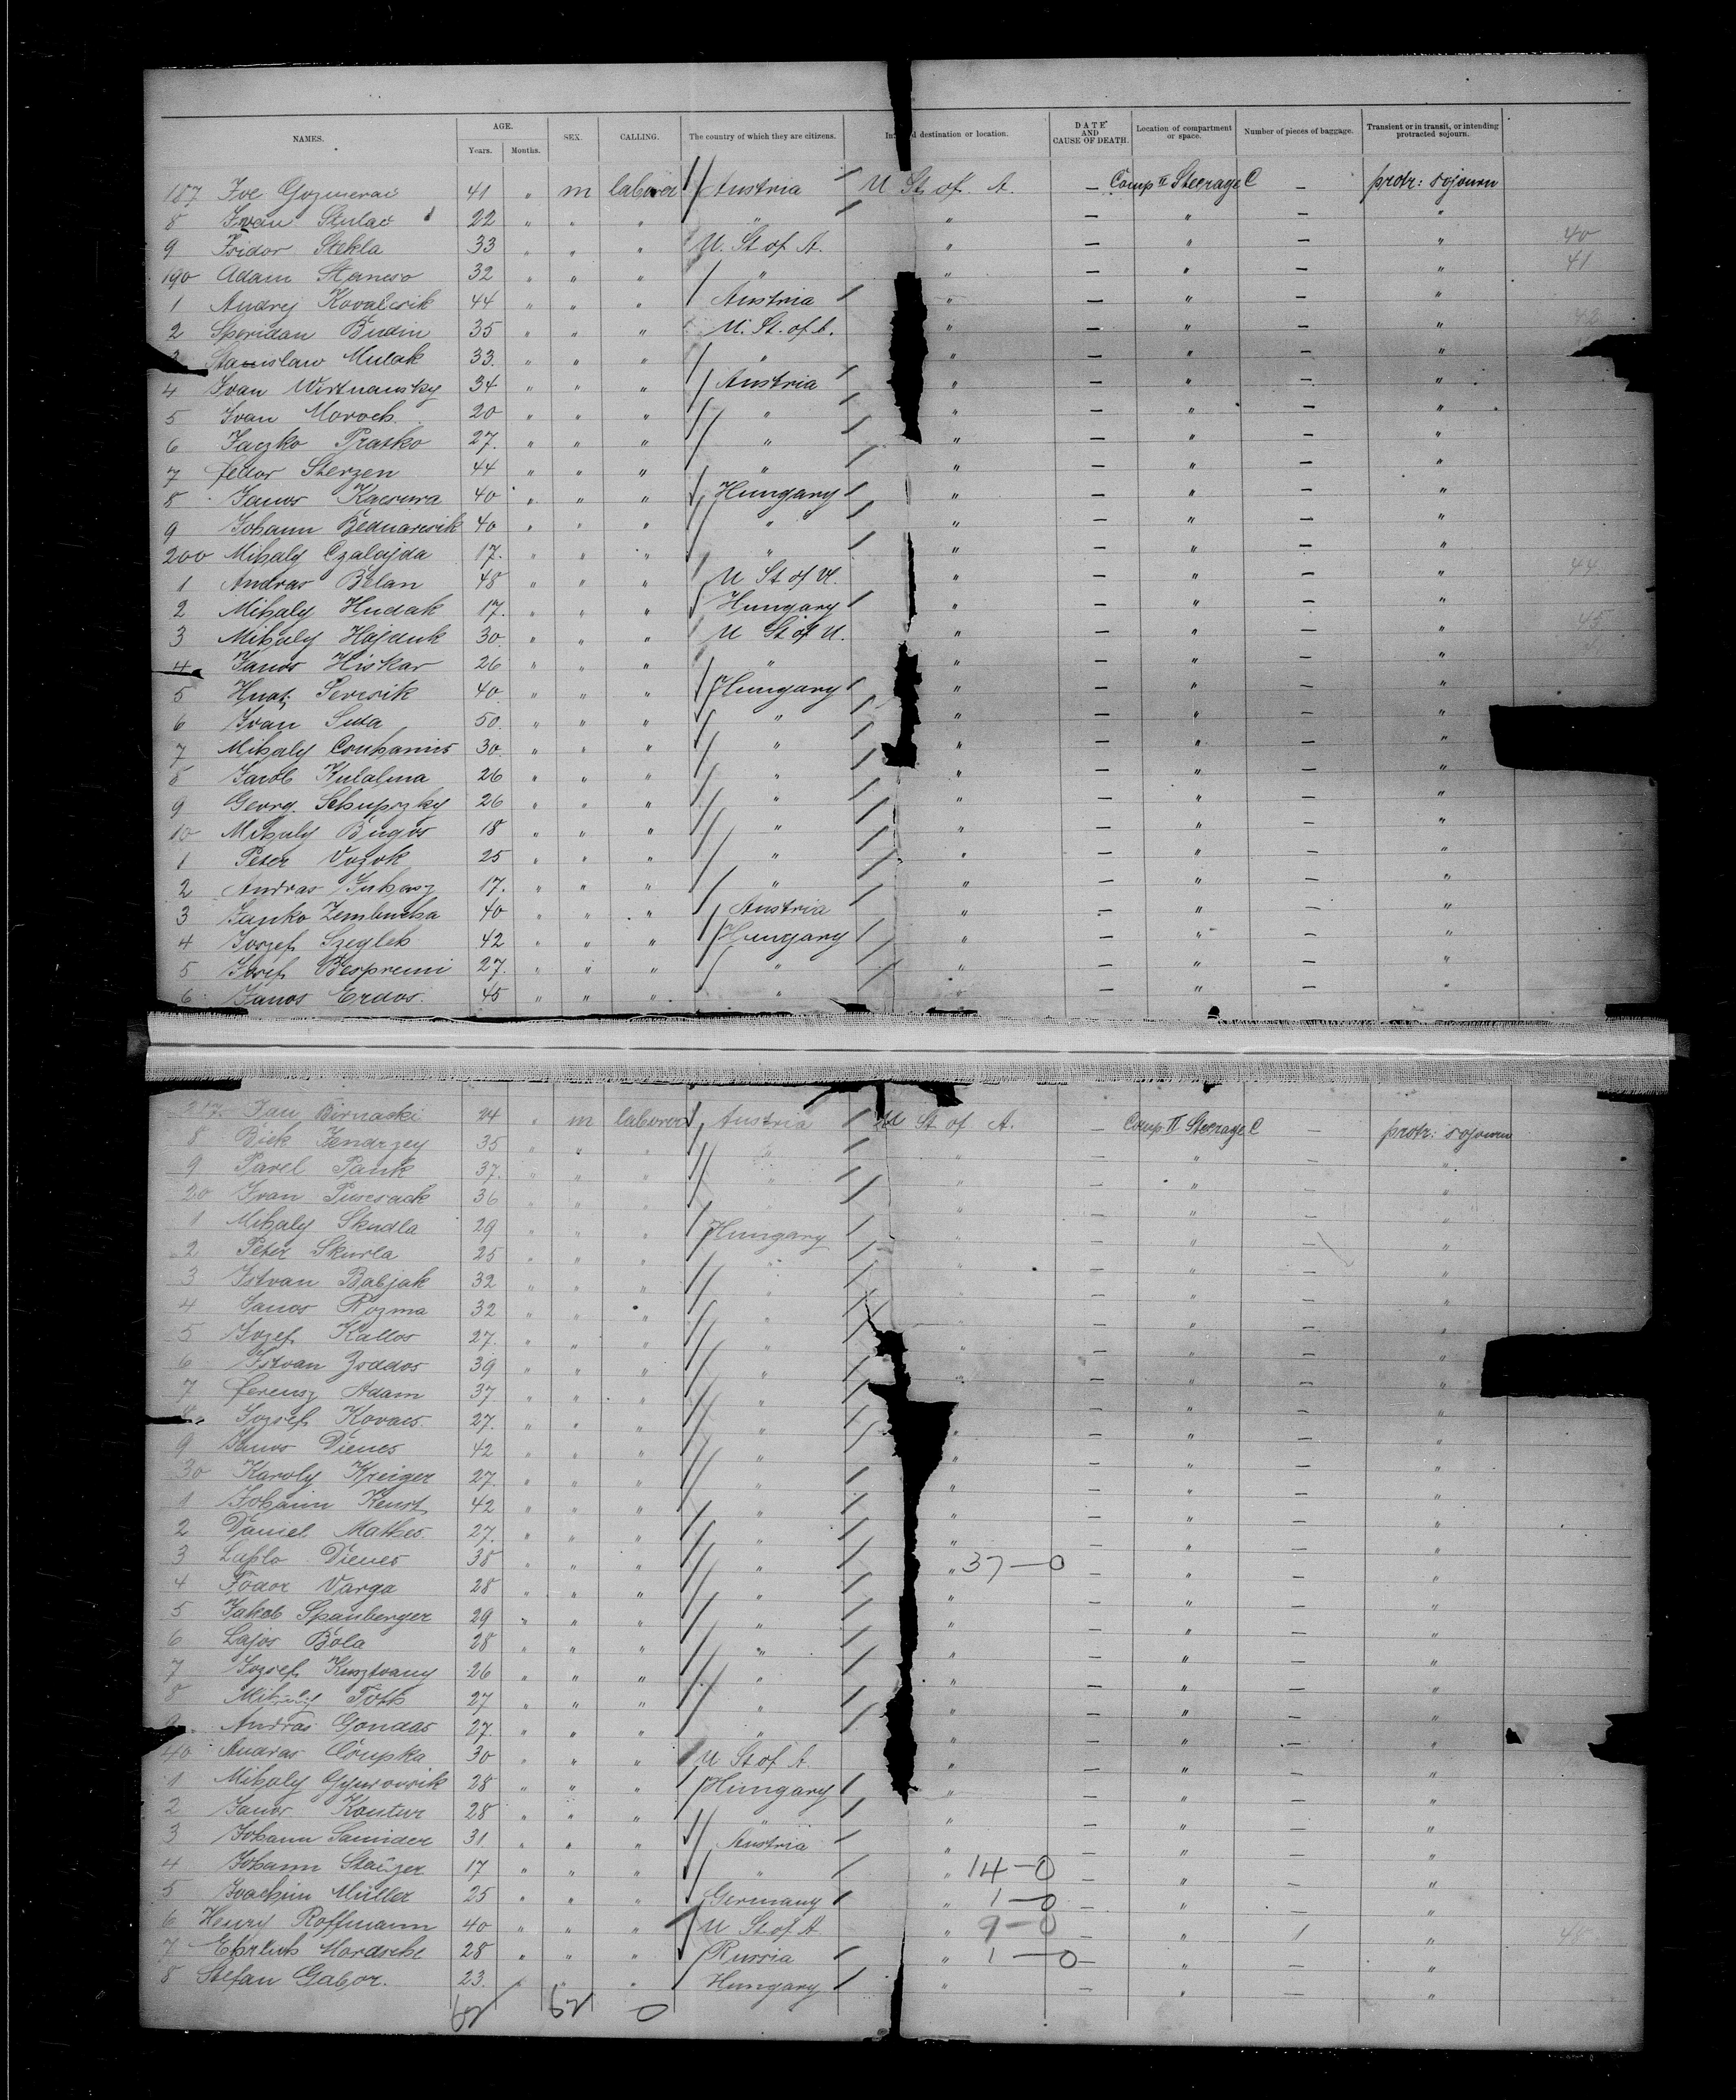 NAMES. AGE. Years. Months. SEX. CALLING. The country of which they are citizens. Intended destination or location. DATE AND CAUSE OF DEATH. Location of compartment or space. Number of pieces of baggage. Transient or in transit, or intending protracted sojourn.
187 Ive Gozmerac 41 " m laborer Austria U St of A. — Comp II Steerage C — protr: sojourn
8 Ivan Stulac 22 " " " " " — " — "
9 Isidor Stekla 33 " " " U. St of A. " — " — " 40
190 Adam Stancso 32 " " " " " — " — " 41
1 Andrej Kovalcsik 44 " " " Austria " — " — "
2 Speridan Budin 35 " " " U. St. of A. " — " — " 42
3 Stanislaw Mulak 33 " " " " " — " — "
4 Ivan Wirtnansky 34 " " " Austria " — " — "
5 Ivan Moroch 20 " " " " " — " — "
6 Jaczko Prasko 27 " " " " " — " — "
7 Fedor Sterzen 44 " " " " " — " — "
8 Janos Kacsura 40 " " " Hungary " — " — "
9 Johann Bednarcsik 40 " " " " " — " — "
200 Mihaly Czalajda 17 " " " " " — " — "
1 Andras Belan 48 " " " U St of A. " — " — " 44
2 Mihaly Hudak 17 " " " Hungary " — " — "
3 Mihaly Hajduk 30 " " " U St of A. " — " — " 45
4 Janos Hiskar 26 " " " " " — " — "
5 Hnat Sevcsik 40 " " " Hungary " — " — "
6 Ivan Suta 50 " " " " " — " — "
7 Mihaly 30 " " " " " — " — "
8 Jacob Kulalma 26 " " " " " — " — "
9 Georg. Schupszky 26 " " " " " — " — "
10 Mihaly Bugos 18 " " " " " — " — "
1 Peter Vozok 25 " " " " " — " — "
2 Andras Juhasz 17 " " " " " — " — "
3 Janko Zembucha 40 " " " Austria " — " — "
4 Joszef Szegleb 42 " " " Hungary " — " — "
5 Josef Bespremi 27 " " " " " — " — "
6 Janos Erdos 45 " " " " " — " — "
217 Jan Birnacki 24 " m laborer Austria U St of A. — Comp II Steerage C — protr: sojourn
8 Bick Jendrzey 35 " " " " " — " — "
9 Pavel Pank 37 " " " " " — " — "
20 Ivan 36 " " " " " — " — "
1 Mihaly Skudla 29 " " " Hungary " — " — "
2 Peter Skurla 25 " " " " " — " — "
3 Istvan Babjak 32 " " " " " — " — "
4 Janos Rozma 32 " " " " " — " — "
5 Jozef Kallos 27 " " " " " — " — "
6 Istvan Zoddos 39 " " " " " — " — "
7 Ferensz Adam 37 " " " " " — " — "
8 Jozsef Kovacs 27 " " " " " — " — "
9 Janos Dienes 42 " " " " " — " — "
30 Karoly Kreiger 27 " " " " " — " — "
1 Johann Kenst 42 " " " " " — " — "
2 Daniel Mathes 27 " " " " " — " — "
3 Laszlo Dienes 38 " " " " " 37—0 — " — "
4 Todor Varga 28 " " " " " — " — "
5 Jakob Spanberger 29 " " " " " — " — "
6 Lajos Bola 28 " " " " " — " — "
7 Jozsef Kusztvany 26 " " " " " — " — "
8 Mihaly Toth 27 " " " " " — " — "
9 Andras Gondas 27 " " " " " — " — "
40 Andras Csupka 30 " " " U St of A. " — " — "
1 Mihaly Gyurovcsik 28 " " " Hungary " — " — "
2 Janos Kontur 28 " " " " " — " — "
3 Johann Samider 31 " " " Austria " — " — "
4 Johann Stanzer 17 " " " " " 14—0 — " — "
5 Joachim Müller 25 " " " Germany " 1—0 — " — "
6 Henry Roffmann 40 " " " U St of A " 9—0 — " 1 " 48
7 Ehrlich Mordsche 28 " " " Russia " 1—0 — " — "
8 Stefan Gabor. 23 " " " Hungary " — " — "
62 62 0